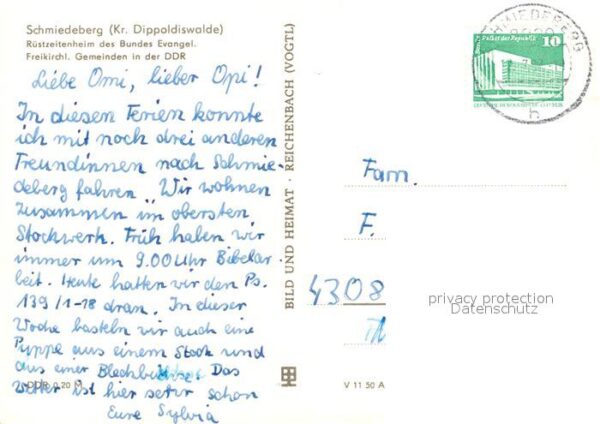 Schmiedeberg (Kr. Dippoldiswalde)
Rüstzeitenheim des Bundes Evangel.
Freikirchl. Gemeinden in der DDR
Liebe Omi, lieber Opi!
In diesen Ferien konnte
ich mit noch drei anderen
Freundinnen nach Schmie-
deberg fahren. Wir wohnen
zusammen im obersten
Stockwerk. Früh haben wir
immer um 9.00 Uhr Bibelar-
beit. Heute hatten wir den Ps.
139/1-18 dran. In dieser
Woche basteln wir auch eine
Puppe aus einem Stock und
aus einer Blechbüchse. Das
Wetter ist hier sehr schön
Eure Sylvia
DDR 0,20 M
BILD UND HEIMAT · REICHENBACH (VOGTL)
V 11 50 A
Palast der Republik
10
SCHMIEDEBERG
h
Fam.
F.
4308
Th
privacy protection
Datenschutz